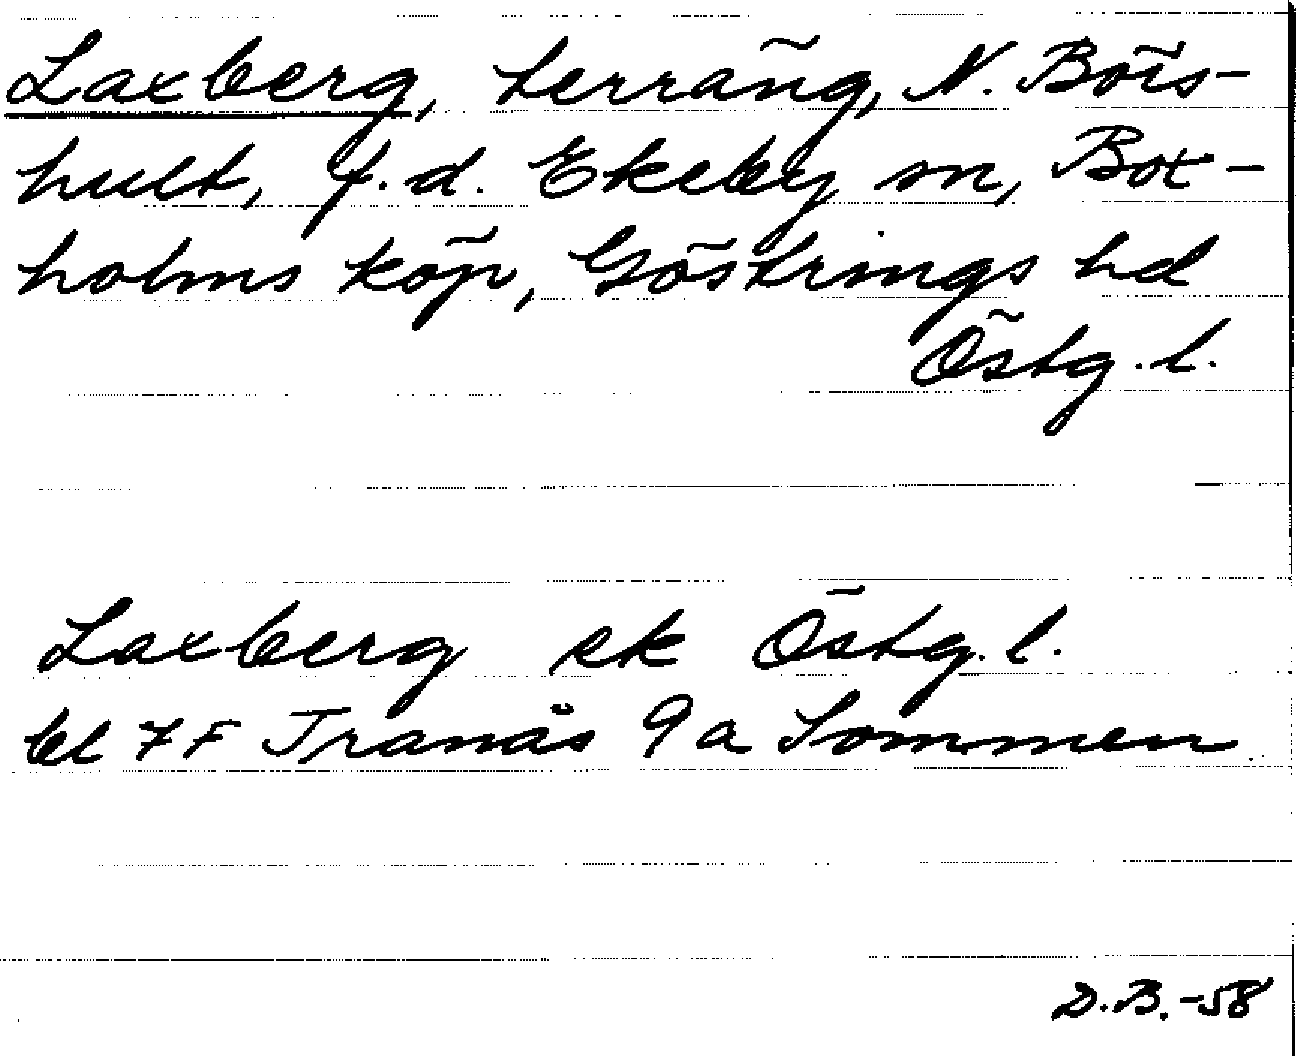 Laxberg, terräng, N. Börs-
hult, f.d. Ekeby sn, Box-
holms köp, Göstrings hd
Östg. l.
Laxberg ek Östg. l.
bl 7 F Tranås 9a Sommen
D.B. -58